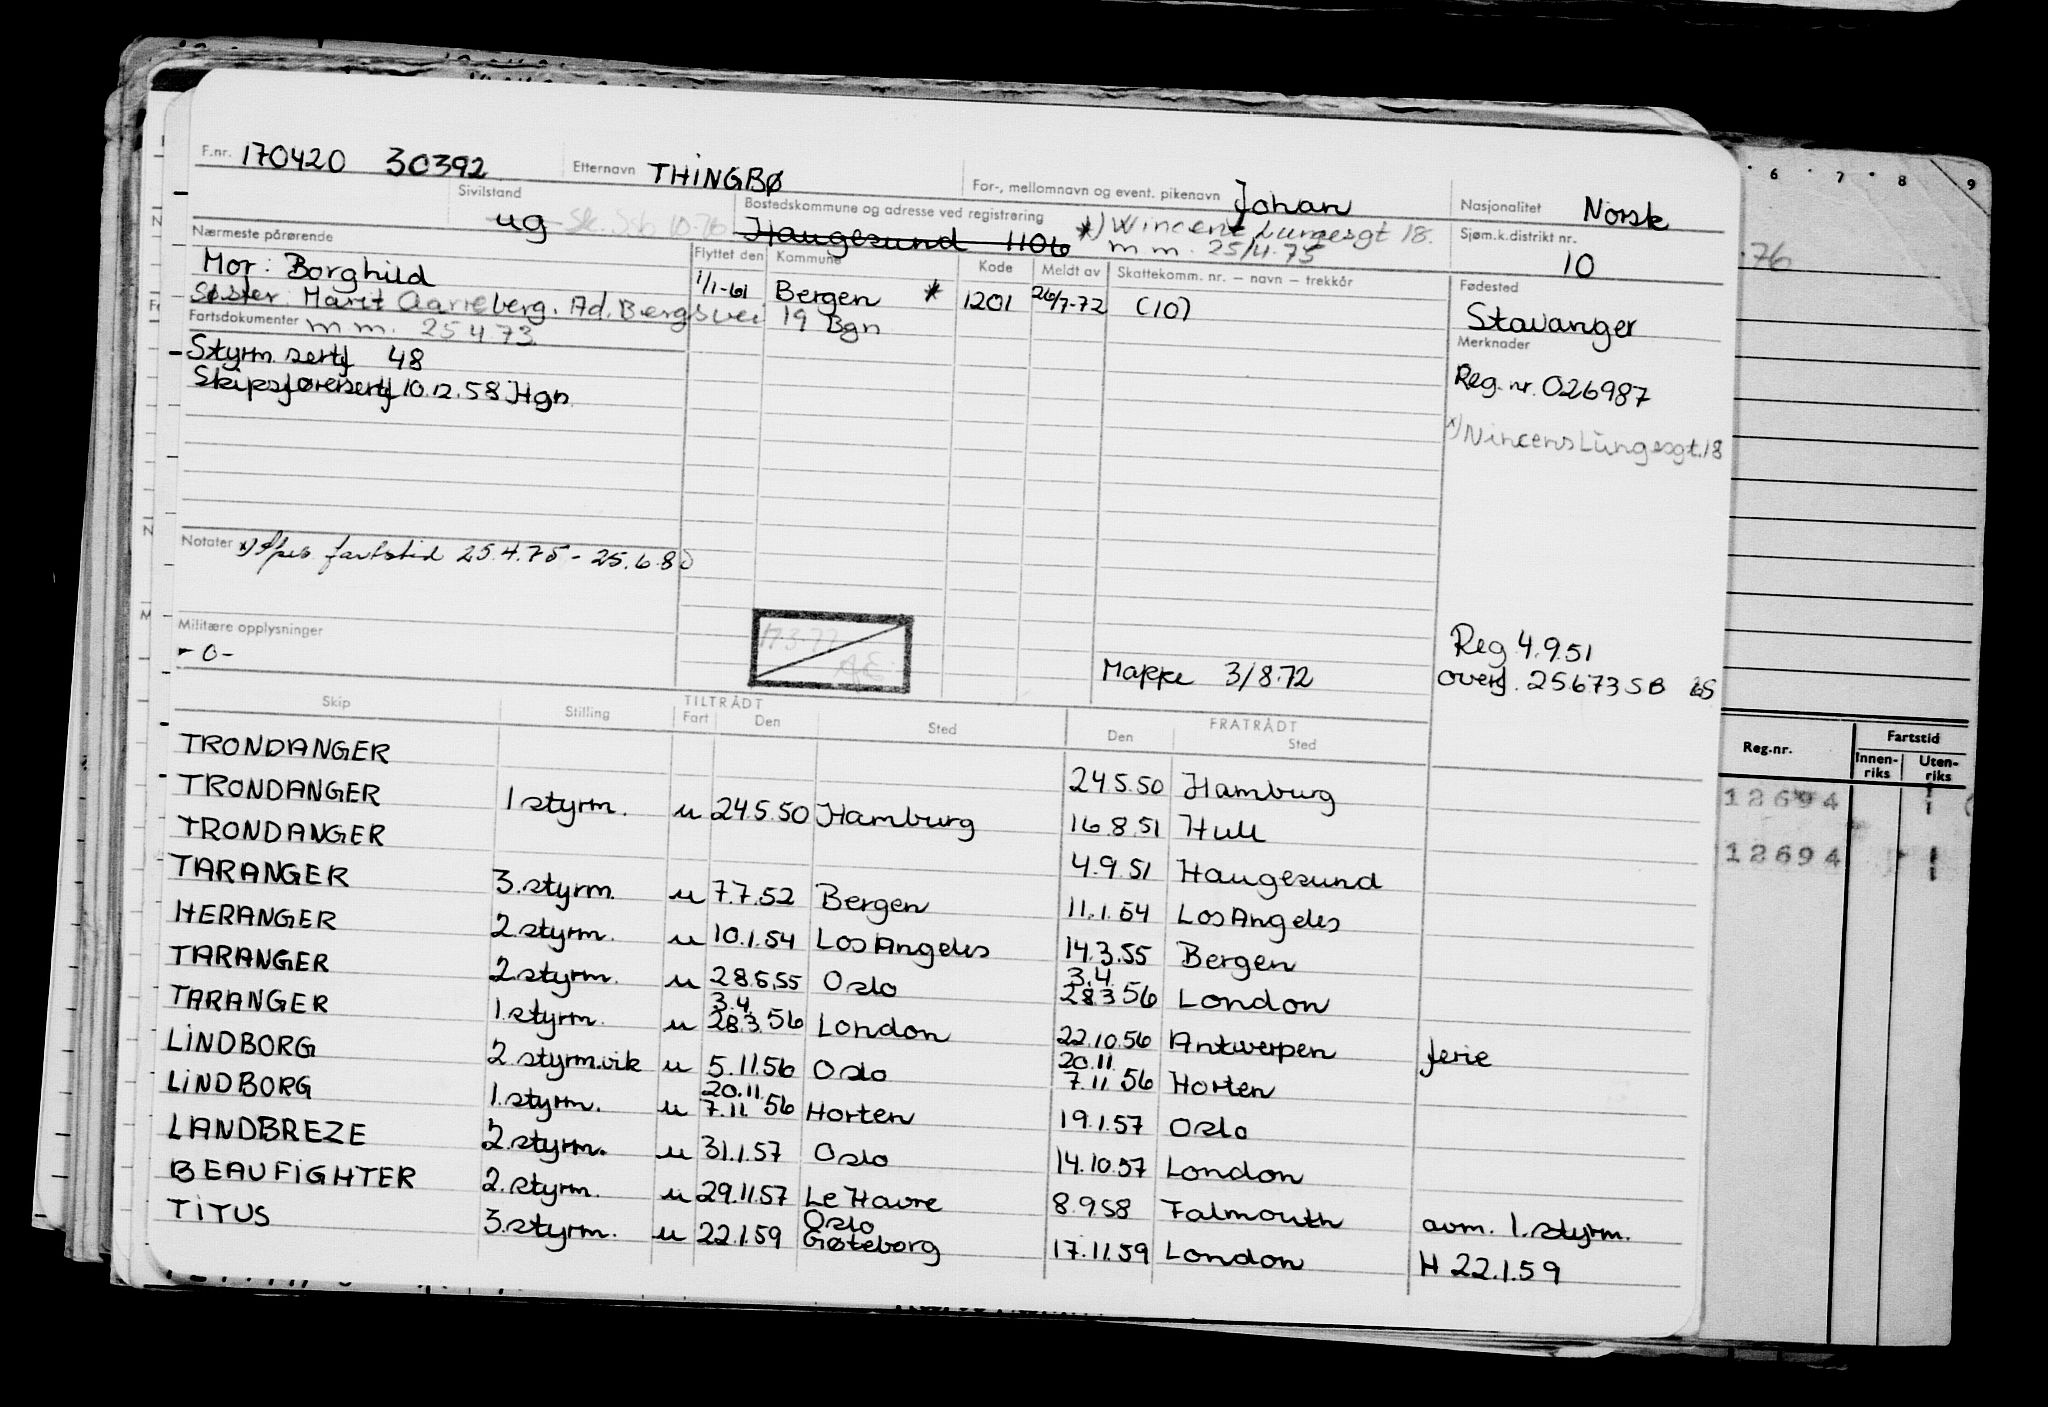 F.nr. 170420 30392 Etternavn THINGBØ For-, mellomnavn og event. pikenavn Johan Nasjonalitet Norsk
Sivilstand ug Bostedskommune og adresse ved registrering Haugesund 1106 *) Wincent Lungesgt 18. Sjøm.k.distrikt nr. 10
m m. 25/4.75
Nærmeste pårørende Flyttet den Kommune Kode Meldt av Skattekomm. nr. – navn – trekkår Fødested
Mor: Borghild 1/1-61 Bergen * 1201 26/7-72 (10) Stavanger
Søster: Marit Aarreberg. Ad. Bergsvei 19 Bgn
Fartsdokumenter m m. 25 4 73 Merknader
Styrm sertf 48 Reg. nr. 026987
Skipsførersertf 10.12.58 Hgn
*) Nincens Lungesgt. 18
Notater x) fartstid 25.4.75 - 25.6.80
Militære opplysninger
- 0 -
17.3.77
Reg 4.9.51
Mappe 3/8.72 overf. 25673 SB
Skip Stilling TILTRÅDT Fart Den Sted FRATRÅDT Den Sted
TRONDANGER 24.5.50 Hamburg
TRONDANGER 1 styrm. u 24.5.50 Hamburg 16.8.51 Hull
TRONDANGER 4.9.51 Haugesund
TARANGER 3.styrm. u 7.7.52 Bergen 11.1.54 Los Angeles
HERANGER 2.styrm. u 10.1.54 Los Angeles 14.3.55 Bergen
TARANGER 2.styrm. u 28.5.55 Oslo 3.4. 28.3 56 London
TARANGER 1.styrm. u 3.4. 28.3. 56 London 22.10.56 Antwerpen ferie
LINDBORG 2.styrm.vik u 5.11.56 Oslo 20.11. 7.11 56 Horten
LINDBORG 1.styrm. u 20.11. 7.11 56 Horten 19.1.57 Oslo
LANDBREZE 2.styrm. u 31.1.57 Oslo 14.10.57 London
BEAUFIGHTER 2.styrm. u 29.11.57 Le Havre 8.9.58 Falmouth avm. 1.styrm.
TITUS 3.styrm. u 22.1.59 Oslo Gøteborg 17.11.59 London H 22.1.59
6 7 8 9
.76
Reg.nr. Fartstid
Innen-riks Uten-riks
12694
12694